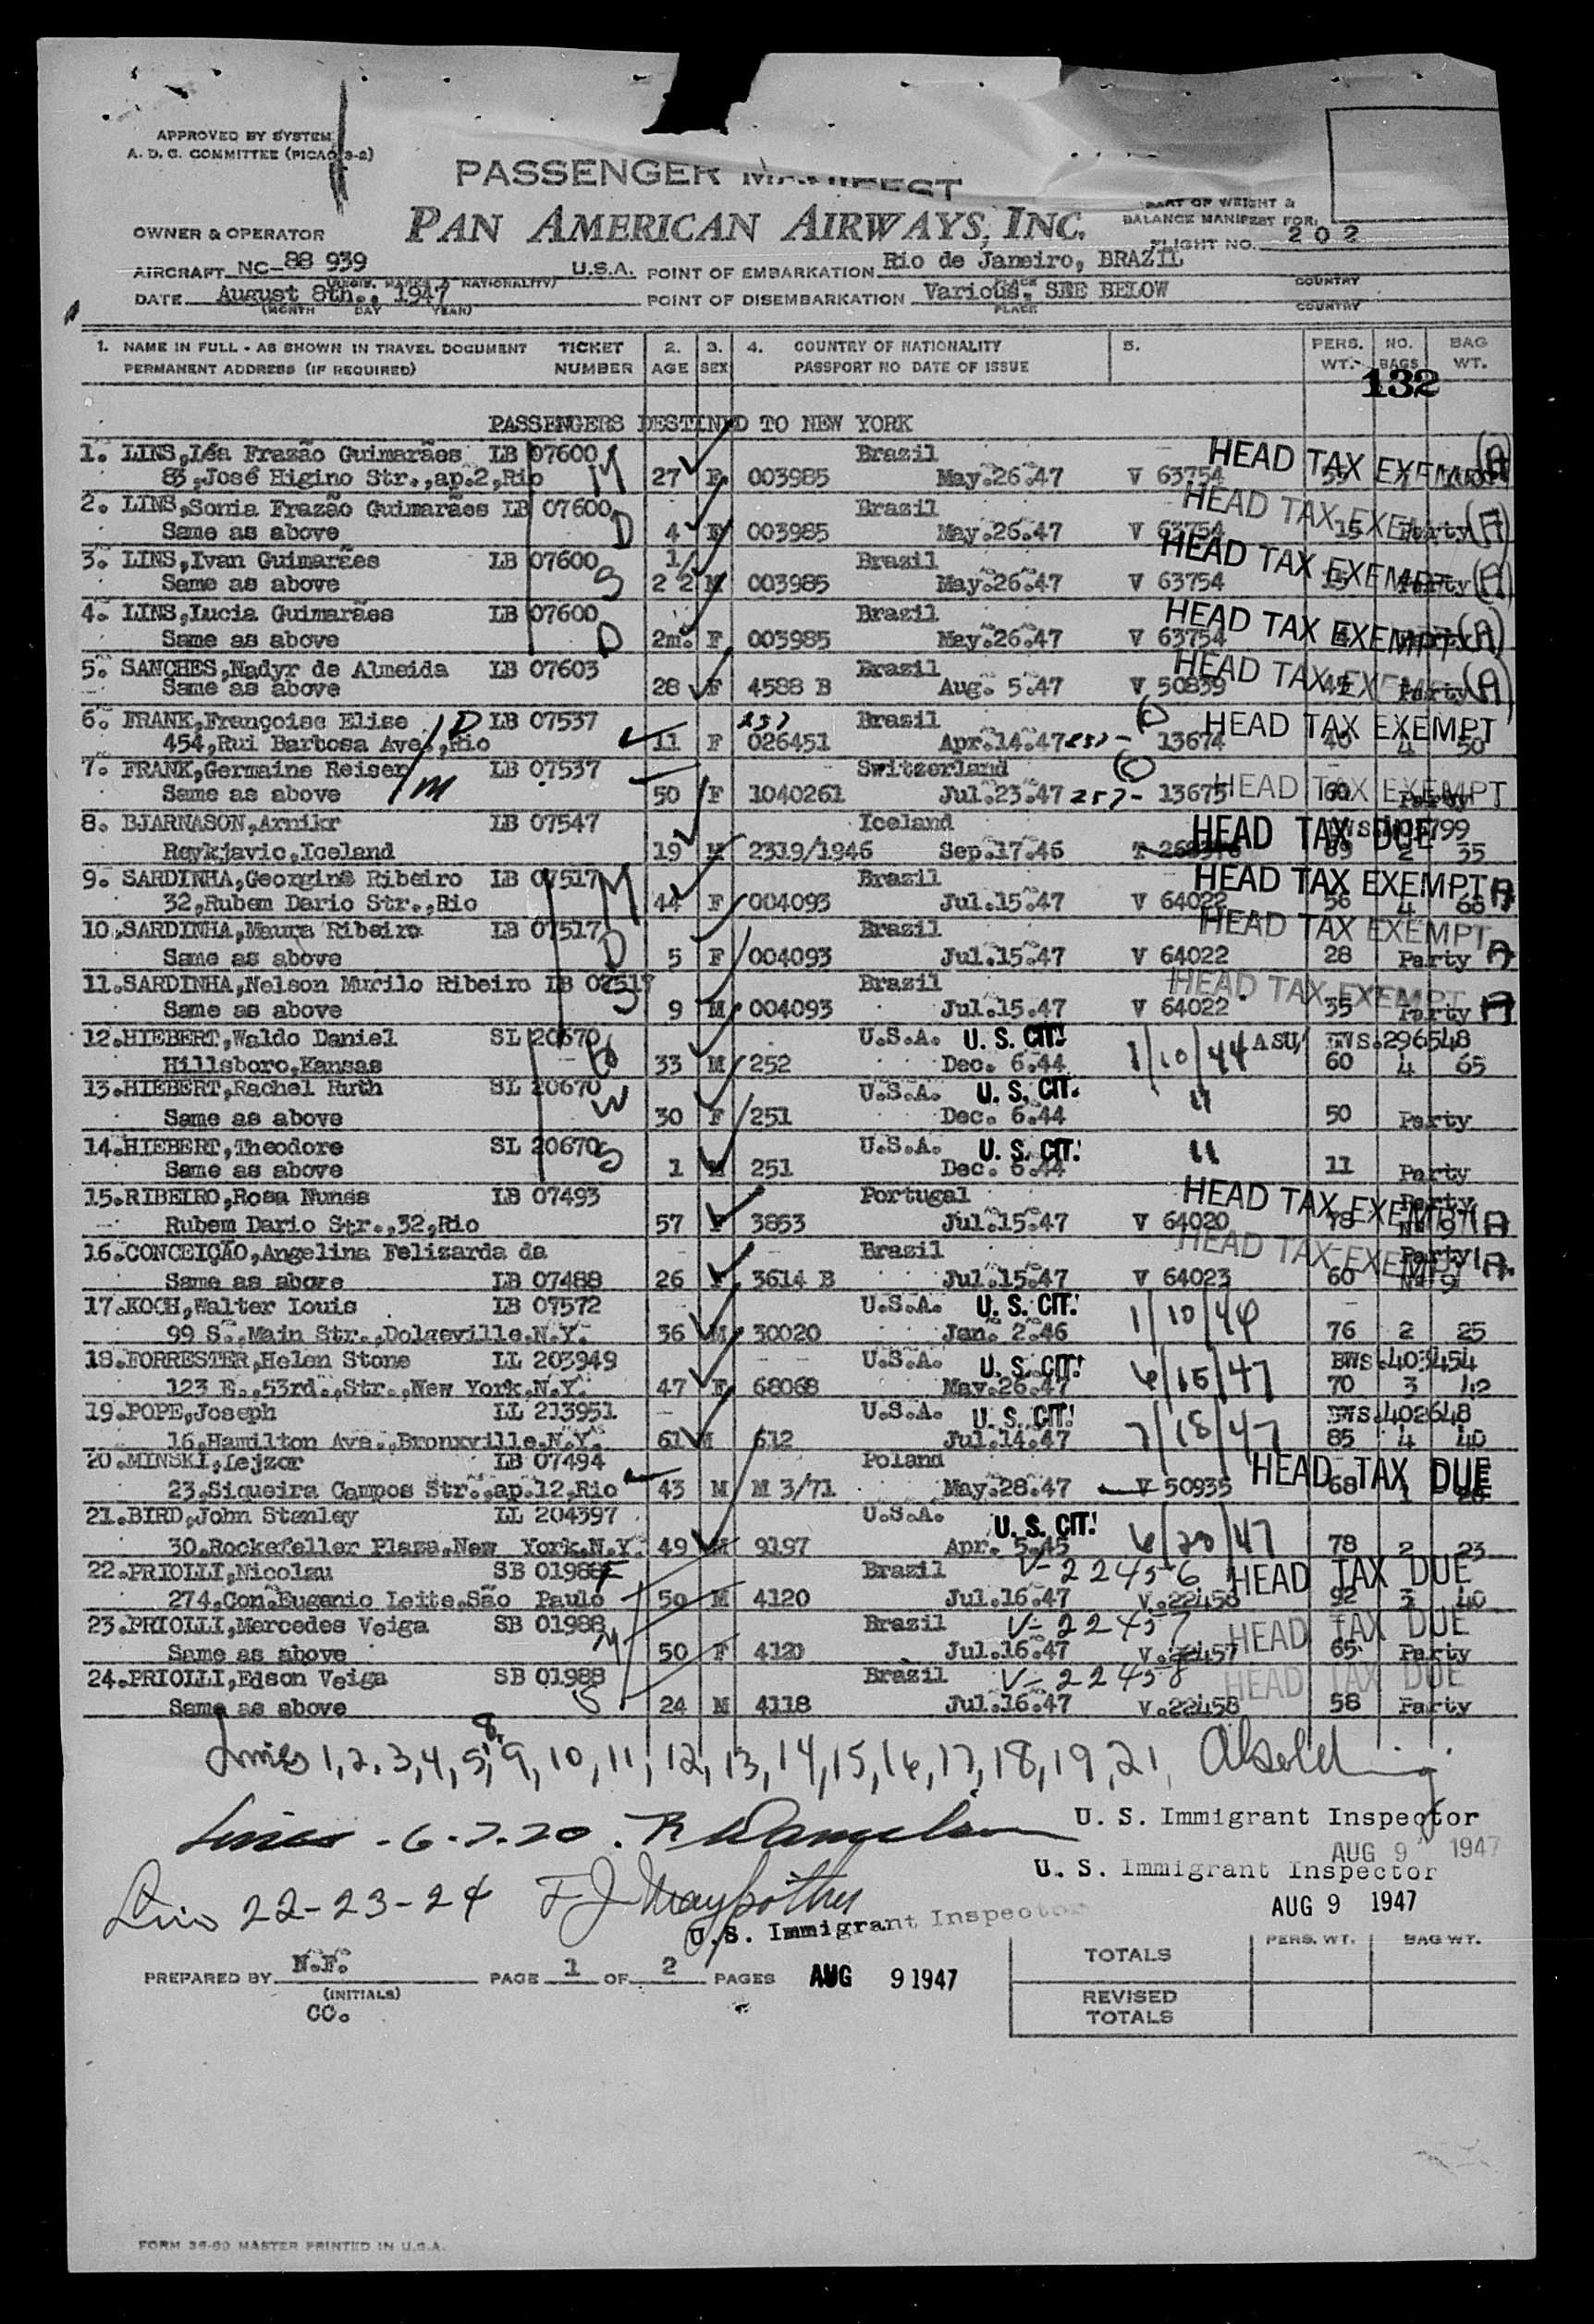 APPROVED BY SYSTEM
A. D. C. COMMITTEE (PICAO 9-2)
PASSENGER MANIFEST
PAN AMERICAN AIRWAYS, INC.
PART OF WEIGHT &
BALANCE MANIFEST FOR
FLIGHT NO. 202
OWNER & OPERATOR
AIRCRAFT NC-88 939 U.S.A. POINT OF EMBARKATION Rio de Janeiro, BRAZIL
(REGIS. MARKS & NATIONALITY) COUNTRY
DATE August 8th., 1947 POINT OF DISEMBARKATION Various, SEE BELOW
(MONTH DAY YEAR) PLACE COUNTRY
1. NAME IN FULL - AS SHOWN IN TRAVEL DOCUMENT TICKET 2. 3. 4. COUNTRY OF NATIONALITY 5. PERS. NO. BAG
PERMANENT ADDRESS (IF REQUIRED) NUMBER AGE SEX PASSPORT NO DATE OF ISSUE WT. BAGS WT.
132
PASSENGERS DESTINED TO NEW YORK
1. LINS,Léa Frazão Guimarães LB 07600 M Brazil HEAD TAX EXEMPT (A)
83,José Higino Str.,ap.2,Rio 27 F 003985 May.26.47 V 63754
2. LINS,Sonia Frazão Guimarães LB 07600 D Brazil HEAD TAX EXEMPT (A)
Same as above 4 F 003985 May.26.47 V 63754 15 Party
3. LINS,Ivan Guimarães LB 07600 S Brazil HEAD TAX EXEMPT (A)
Same as above 2 M 003985 May.26.47 V 63754 Party
4. LINS,Lucia Guimarães LB 07600 D Brazil HEAD TAX EXEMPT (A)
Same as above 2m. F 003985 May.26.47 V 63754
5. SANCHES,Nadyr de Almeida LB 07603 Brazil HEAD TAX EXEMPT (A)
Same as above 28 F 4588 B Aug. 5.47 V 50839 Party
6. FRANK,Françoise Elise D LB 07537 257 Brazil (C) HEAD TAX EXEMPT
454,Rui Barbosa Ave.,Rio 11 F 026451 Apr.14.47 257- 13674 40 4 50
7. FRANK,Germaine Reiser M LB 07537 Switzerland (C) HEAD TAX EXEMPT
Same as above 50 F 1040261 Jul.23.47 257- 13675 60 Party
8. BJARNASON,Arnikr LB 07547 Iceland HEAD TAX DUE
Reykjavic,Iceland 19 M 2319/1946 Sep.17.46 2 35
9. SARDINHA,Georgina Ribeiro LB 07517 M Brazil HEAD TAX EXEMPT A
32,Rubem Dario Str.,Rio 44 F 004093 Jul.15.47 V 64022 56 4 66
10.SARDINHA,Maura Ribeiro LB 07517 D Brazil HEAD TAX EXEMPT
Same as above 5 F 004093 Jul.15.47 V 64022 28 Party A
11.SARDINHA,Nelson Murilo Ribeiro LB 07517 S Brazil HEAD TAX EXEMPT
Same as above 9 M 004093 Jul.15.47 V 64022 35 Party A
12.HIEBERT,Waldo Daniel SL 20670 U.S.A. U. S. CIT. 1/10/44 ASU, BWS.296548
Hillsboro,Kansas 33 M 252 Dec. 6.44 60 4 65
13.HIEBERT,Rachel Ruth SL 20670 W U.S.A. U. S. CIT. "
Same as above 30 F 251 Dec. 6.44 50 Party
14.HIEBERT,Theodore SL 20670 S U.S.A. U. S. CIT. "
Same as above 1 M 251 Dec. 6.44 11 Party
15.RIBEIRO,Rosa Nunes LB 07493 Portugal HEAD TAX EXEMPT Party
Rubem Dario Str.,32,Rio 57 F 3853 Jul.15.47 V 64020 78 Nº 9 A
16.CONCEIÇÃO,Angelina Felizarda da Brazil HEAD TAX EXEMPT Party
Same as above LB 07488 26 F 3614 B Jul.15.47 V 64023 60 Nº 9 A.
17.KOCH,Walter Louis LB 07572 U.S.A. U. S. CIT. 1/10/44
99 S.,Main Str.,Dolgeville,N.Y. 36 M 30020 Jan. 2.46 76 2 25
18.FORRESTER,Helen Stone LL 203949 U.S.A. U. S. CIT. 6/15/47 BWS.403454
123 E.,53rd.,Str.,New York,N.Y. 47 F 68068 May.26.47 70 3 42
19.POPE,Joseph LL 213951 U.S.A. U. S. CIT. 7/18/47 BWS.402648
16,Hamilton Ave.,Bronxville,N.Y. 61 M 612 Jul.14.47 85 4 40
20.MINSKI,Lejzor LB 07494 Poland HEAD TAX DUE
23,Siqueira Campos Str.,ap.12,Rio 43 M M 3/71 May.28.47 V 50935 68 1
21.BIRD,John Stanley LL 204397 U.S.A. U. S. CIT. 6/20/47
30,Rockefeller Plaza,New York,N.Y. 49 M 9197 Apr. 5.45 78 2 23
22.PRIOLLI,Nicolau SB 01988 F Brazil V-22456 HEAD TAX DUE
274,Con.Eugenio Leite,São Paulo 50 M 4120 Jul.16.47 V.22456 92 3 40
23.PRIOLLI,Mercedes Veiga SB 01988 M Brazil V-22457 HEAD TAX DUE
Same as above 50 F 4120 Jul.16.47 V.22457 65 Party
24.PRIOLLI,Edson Veiga SB 01988 S Brazil V-22458 HEAD TAX DUE
Same as above 24 M 4118 Jul.16.47 V.22458 58 Party
Lines 1, 2, 3, 4, 5, 8, 9, 10, 11, 12, 13, 14, 15, 16, 17, 18, 19, 21,
U. S. Immigrant Inspector
Lines - 6-7-20.
AUG 9 1947
U. S. Immigrant Inspector
Line 22-23-24
AUG 9 1947
U.S. Immigrant Inspector
PREPARED BY N.F. PAGE 1 OF 2 PAGES AUG 9 1947
(INITIALS)
CO.
PERS. WT. BAG WT.
TOTALS
REVISED
TOTALS
FORM 36-60 MASTER PRINTED IN U.S.A.